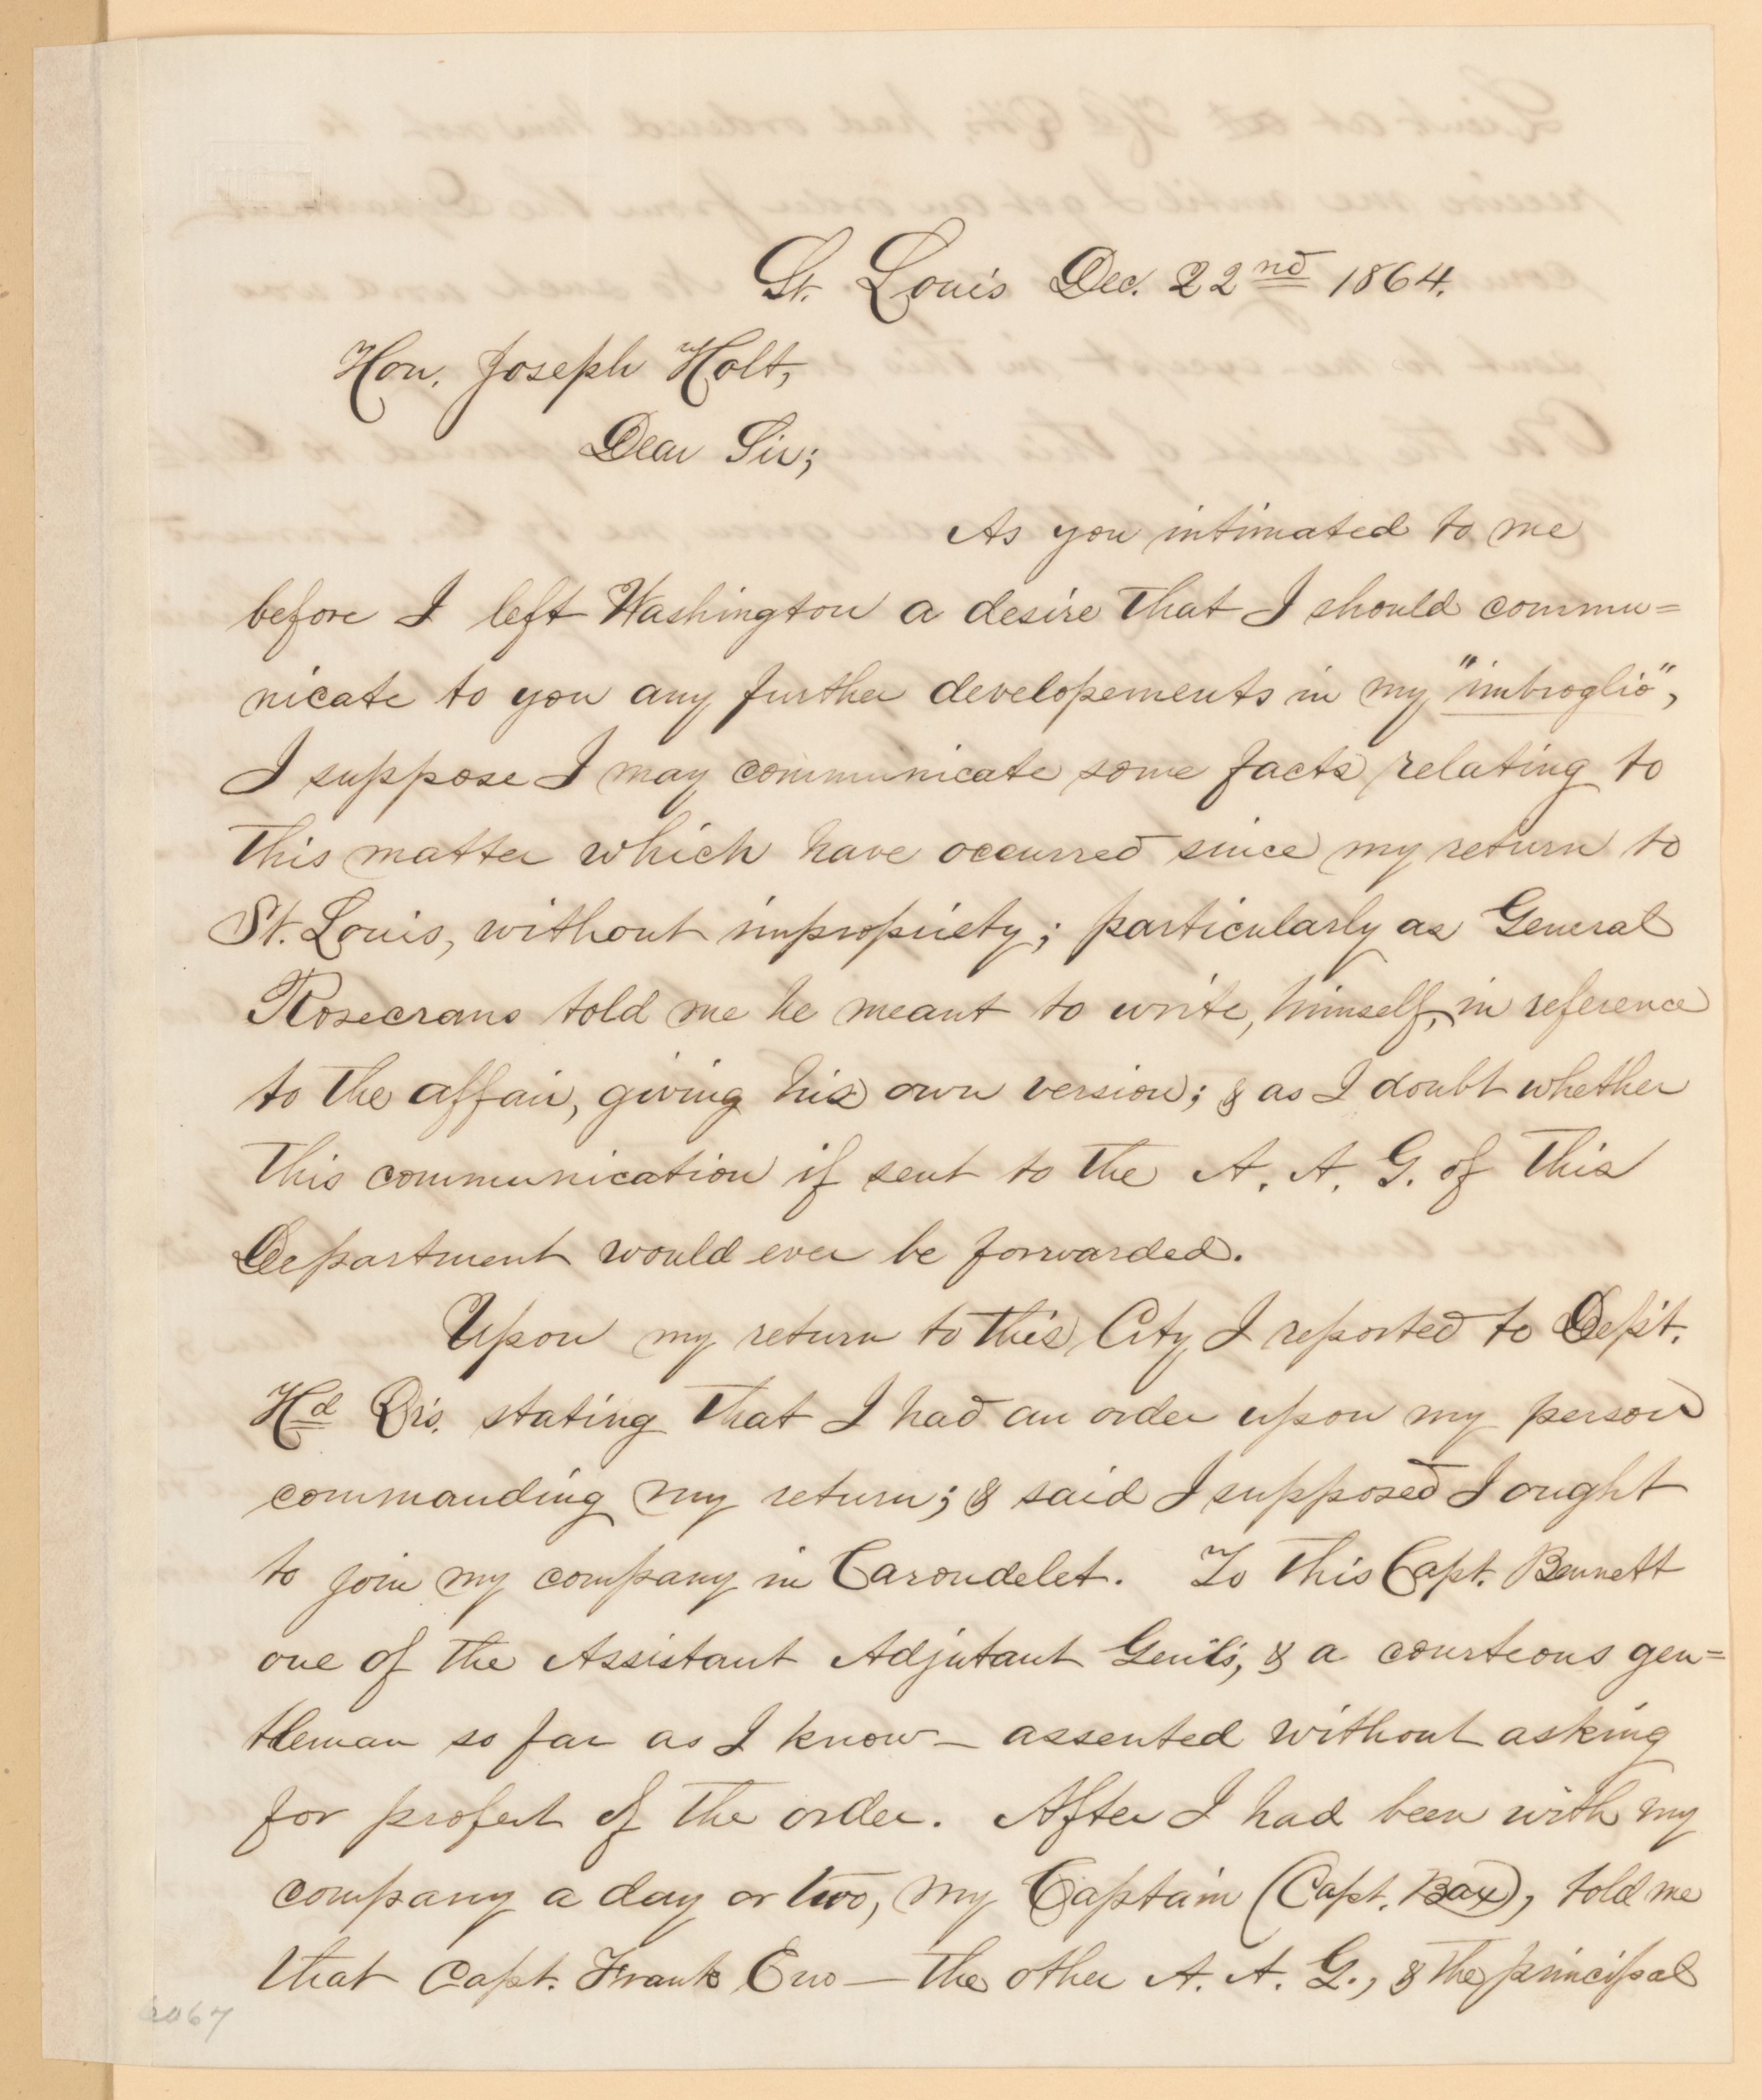 St. Louis Dec. 22nd 1864.
Hon. Joseph Holt,
Dear Sir;
As you intimated to me
before I left Washington a desire that I should commu=
nicate to you any further developements in my "imbroglio",
I suppose I may communicate some facts relating to
this matter which have occurred since my return to
St. Louis, without impropriety; particularly as General
Rosecrans told me he meant to write, himself, in reference
to the affair, giving his own version; & as I doubt whether
this communication if sent to the A. A. G. of this
Department would ever be forwarded.
Upon my return to this City I reported to Dep't.
Hd Qr's. stating that I had an order upon my person
commanding my return; & said I supposed I ought
to join my company in Carondelet. To this Capt. Bennett
one of the Assistant Adjutant Gen'ls, & a courteous gen=
tleman so far as I know — assented without asking
for profert of the order. After I had been with my
company a day or two, my Captain (Capt. Bax), told me
that Capt. Frank Eno — the other A. A. G., & the principal
2067